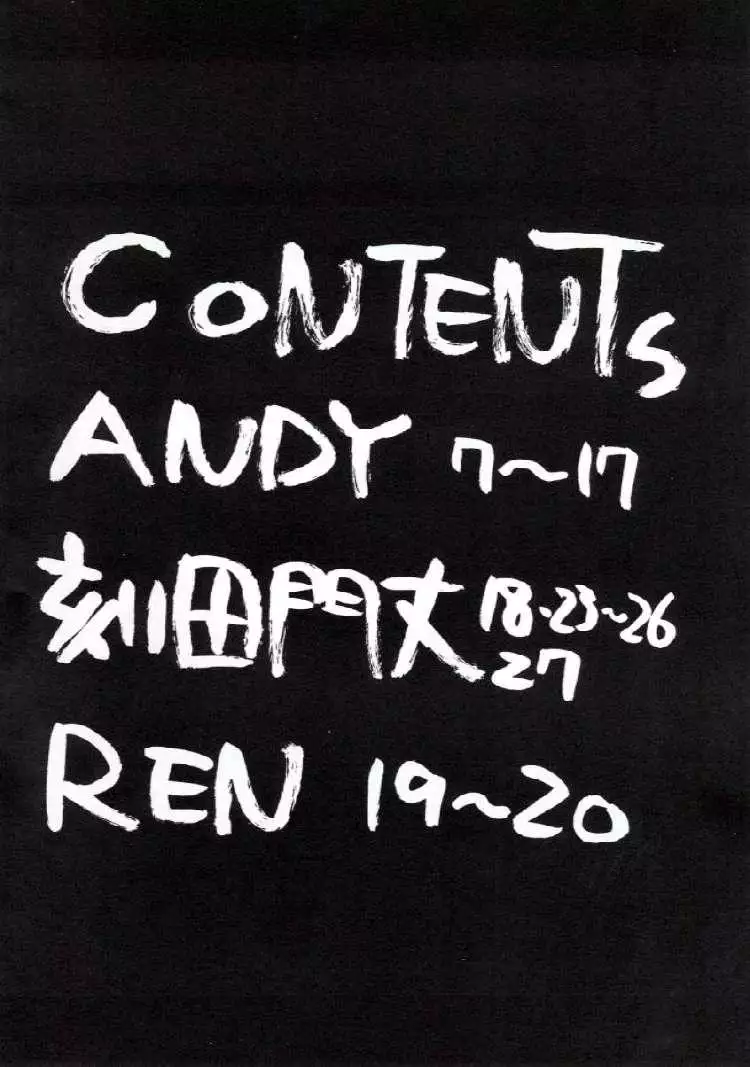 CONTENTS
ANDY 7~17
刻田門丈 18-23~26
27
REN 19~20